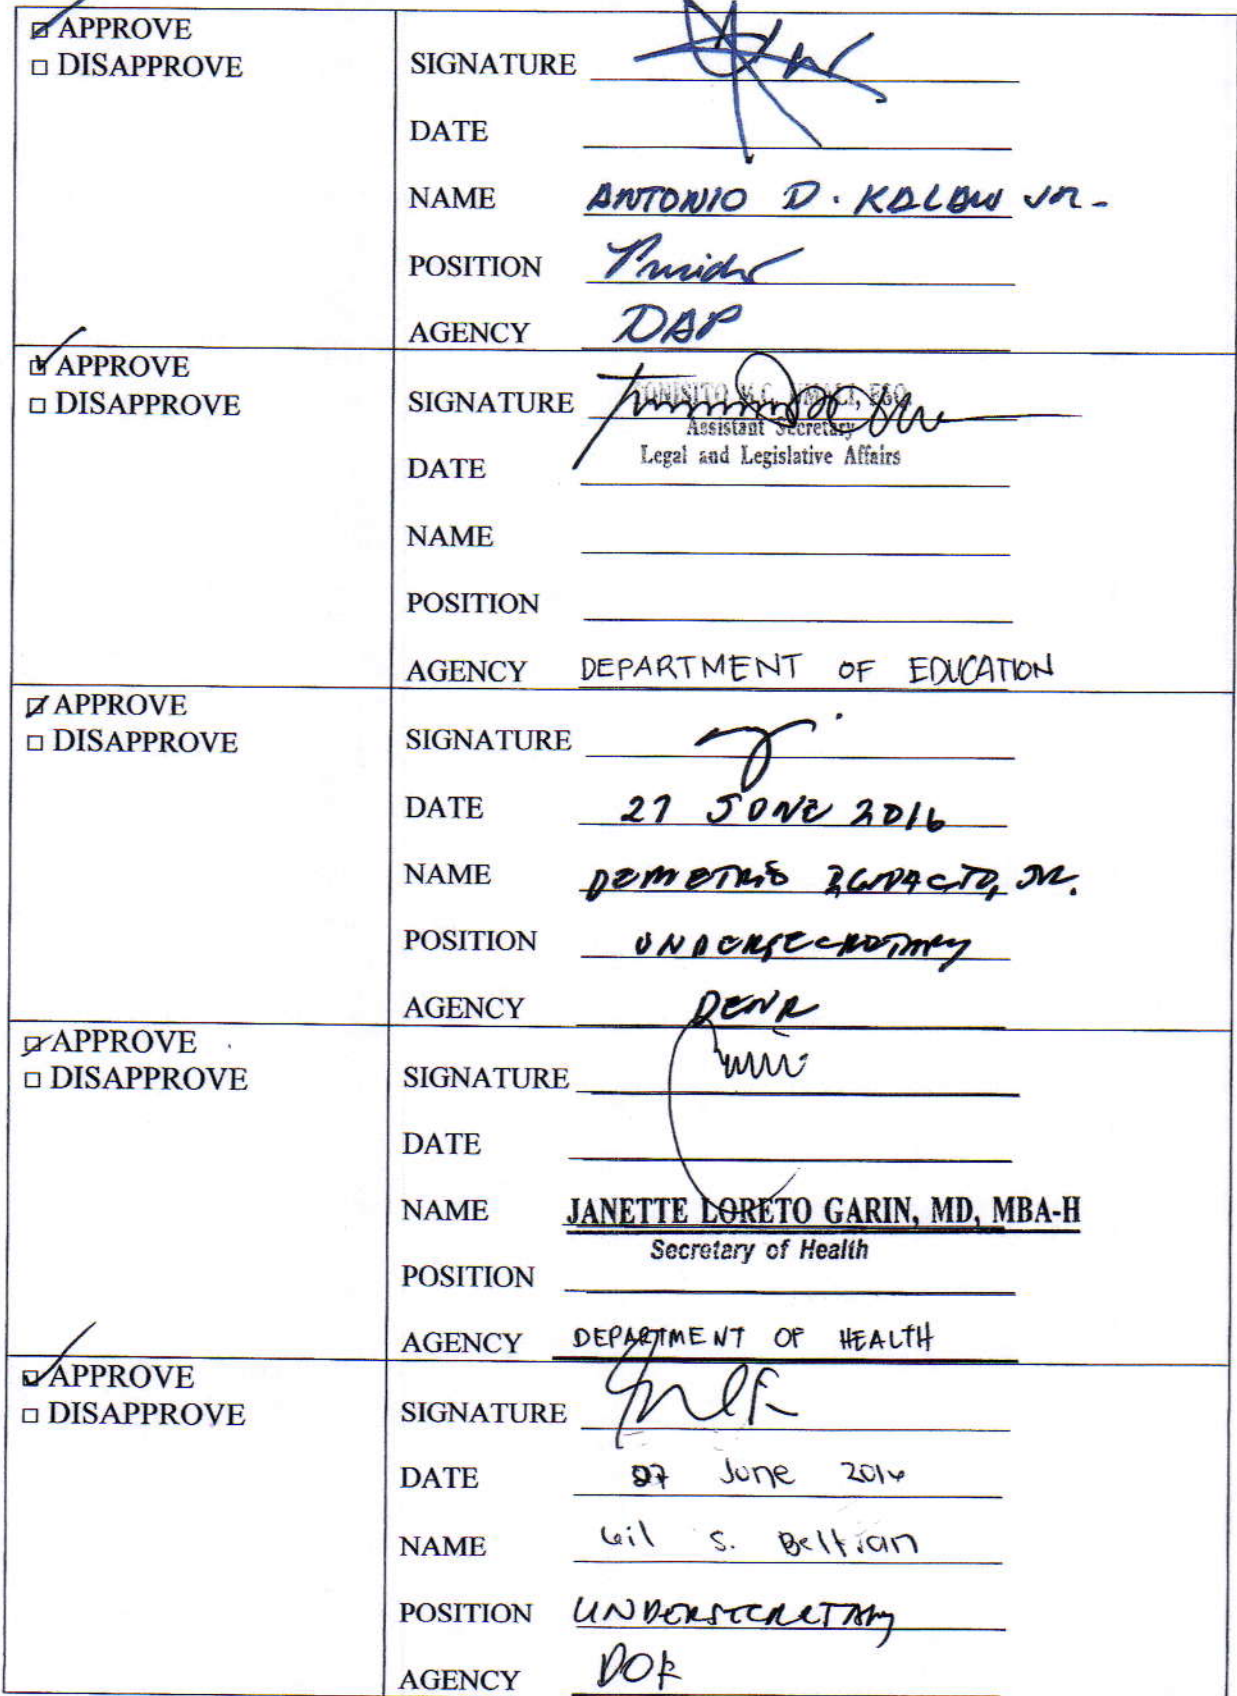 APPROVE
DISAPPROVE
SIGNATURE
DATE
NAME ANTONIO D. KALAW JR.
POSITION
AGENCY DAP
APPROVE
DISAPPROVE
SIGNATURE TONISITO M.C. UMALI, ESQ.
Assistant Secretary
Legal and Legislative Affairs
DATE
NAME
POSITION
AGENCY DEPARTMENT OF EDUCATION
APPROVE
DISAPPROVE
SIGNATURE
DATE 27 JUNE 2016
NAME DEMETRIO IGNACIO, JR.
POSITION UNDERSECRETARY
AGENCY DENR
APPROVE
DISAPPROVE
SIGNATURE
DATE
NAME JANETTE LORETO GARIN, MD, MBA-H
Secretary of Health
POSITION
AGENCY DEPARTMENT OF HEALTH
APPROVE
DISAPPROVE
SIGNATURE
DATE 27 June 2016
NAME Gil S. Beltran
POSITION UNDERSECRETARY
AGENCY DOF